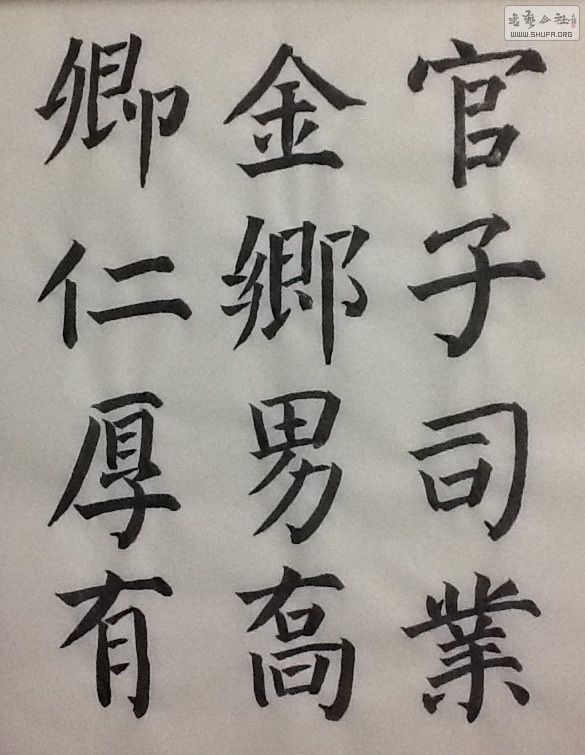 官子司業
金鄉男喬
卿仁厚有
書藝公社
WWW.SHUFA.ORG